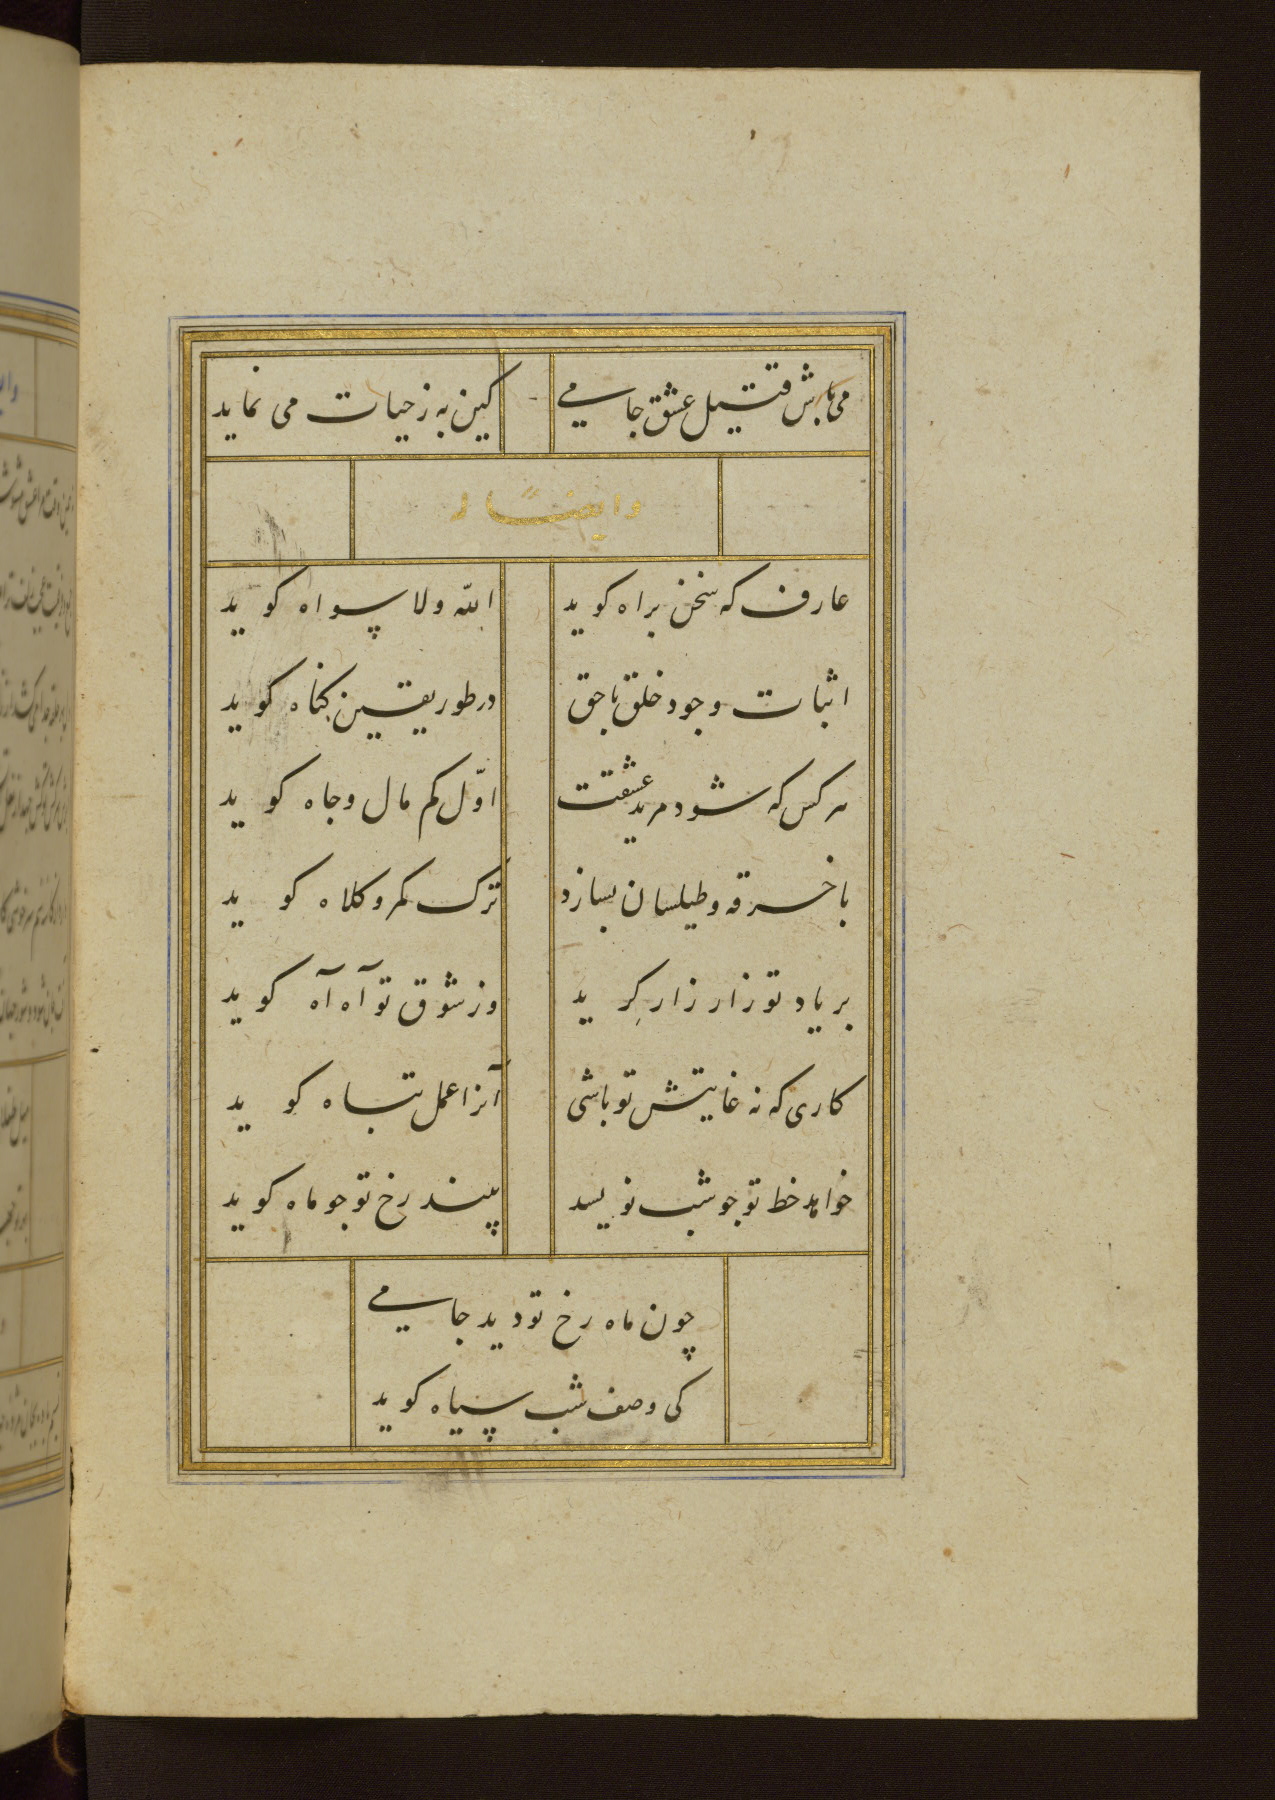 می باش قتیل عشق جامی
کین به ز حیات می نماید
وایضاً
عارف که سخن براه کوید
الله ولا سواه کوید
اثبات وجود خلق با حق
در طور یقین کناه کوید
هر کس که شود مرید عشقت
اوّل کم مال وجاه کوید
با خرقه و طیلسان بسازد
ترک کمر و کلاه کوید
بر یاد تو زار زار کرید
وز شوق تو آه آه کوید
کاری که نه غایتش تو باشی
آنرا عمل تباه کوید
خواهد خط تو جو شب نویسد
بیند رخ تو جو ماه کوید
چون ماه رخ تو دید جامی
کی وصف شب سیاه کوید